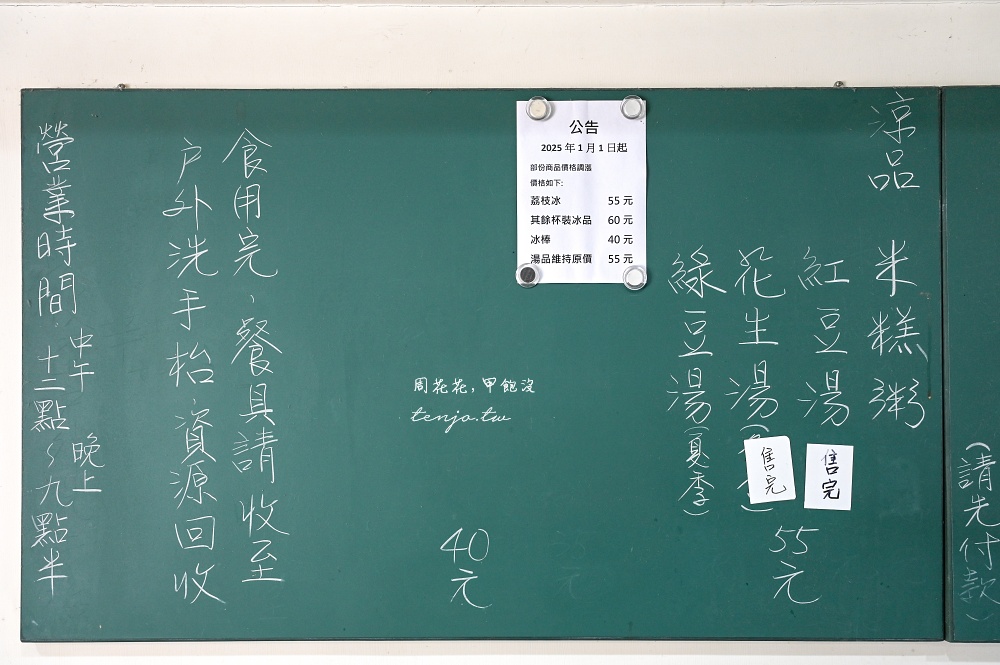 (請先付款)
涼品
米糕粥
紅豆湯
售完
花生湯(
售完
綠豆湯(夏季)
55元
公告
2025 年 1 月 1 日起
部份商品價格調漲
價格如下:
荔枝冰 55 元
其餘杯裝冰品 60 元
冰棒 40 元
湯品維持原價 55 元
40元
周花花,甲飽沒
tenjo.tw
食用完、餐具請收至
戶外洗手枱,資源回收
營業時間:中午十二點~晚上九點半